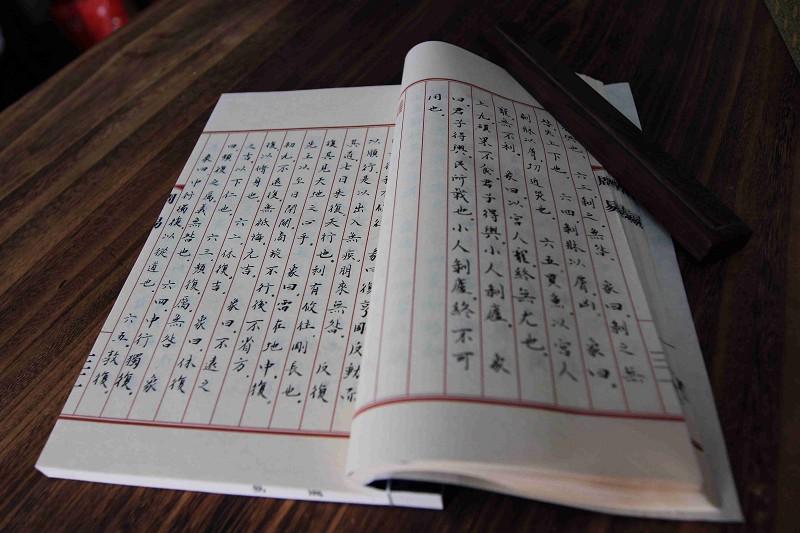 六三剥之無咎。象曰,剥之無
失上下也。六四剥牀以膚凶。象曰,
剥牀以膚切近災也。六五貫魚以宫人
寵無不利。象曰以宫人寵終無尤也。
上九碩果不食君子得輿小人剥廬。象
曰,君子得輿,民所載也小人剥廬,終不可
用也。
象曰復亨剛反動而
以順行是以出入無疾朋来無咎。反復
其道七日来復天行也。利有攸往,剛長也。
復其見天地之心乎。象曰,雷在地中,復
先王以至日閉關商旅不行後不省方。
初九不遠復無祗悔元吉。象曰不遠之
復以修身也。六二休復吉。象曰,休復
之吉以下仁也。六三頻復,厲無咎。象
曰頻復之厲義無咎也。六四中行獨復。
象曰中行獨復以從道也。六五,敦復,